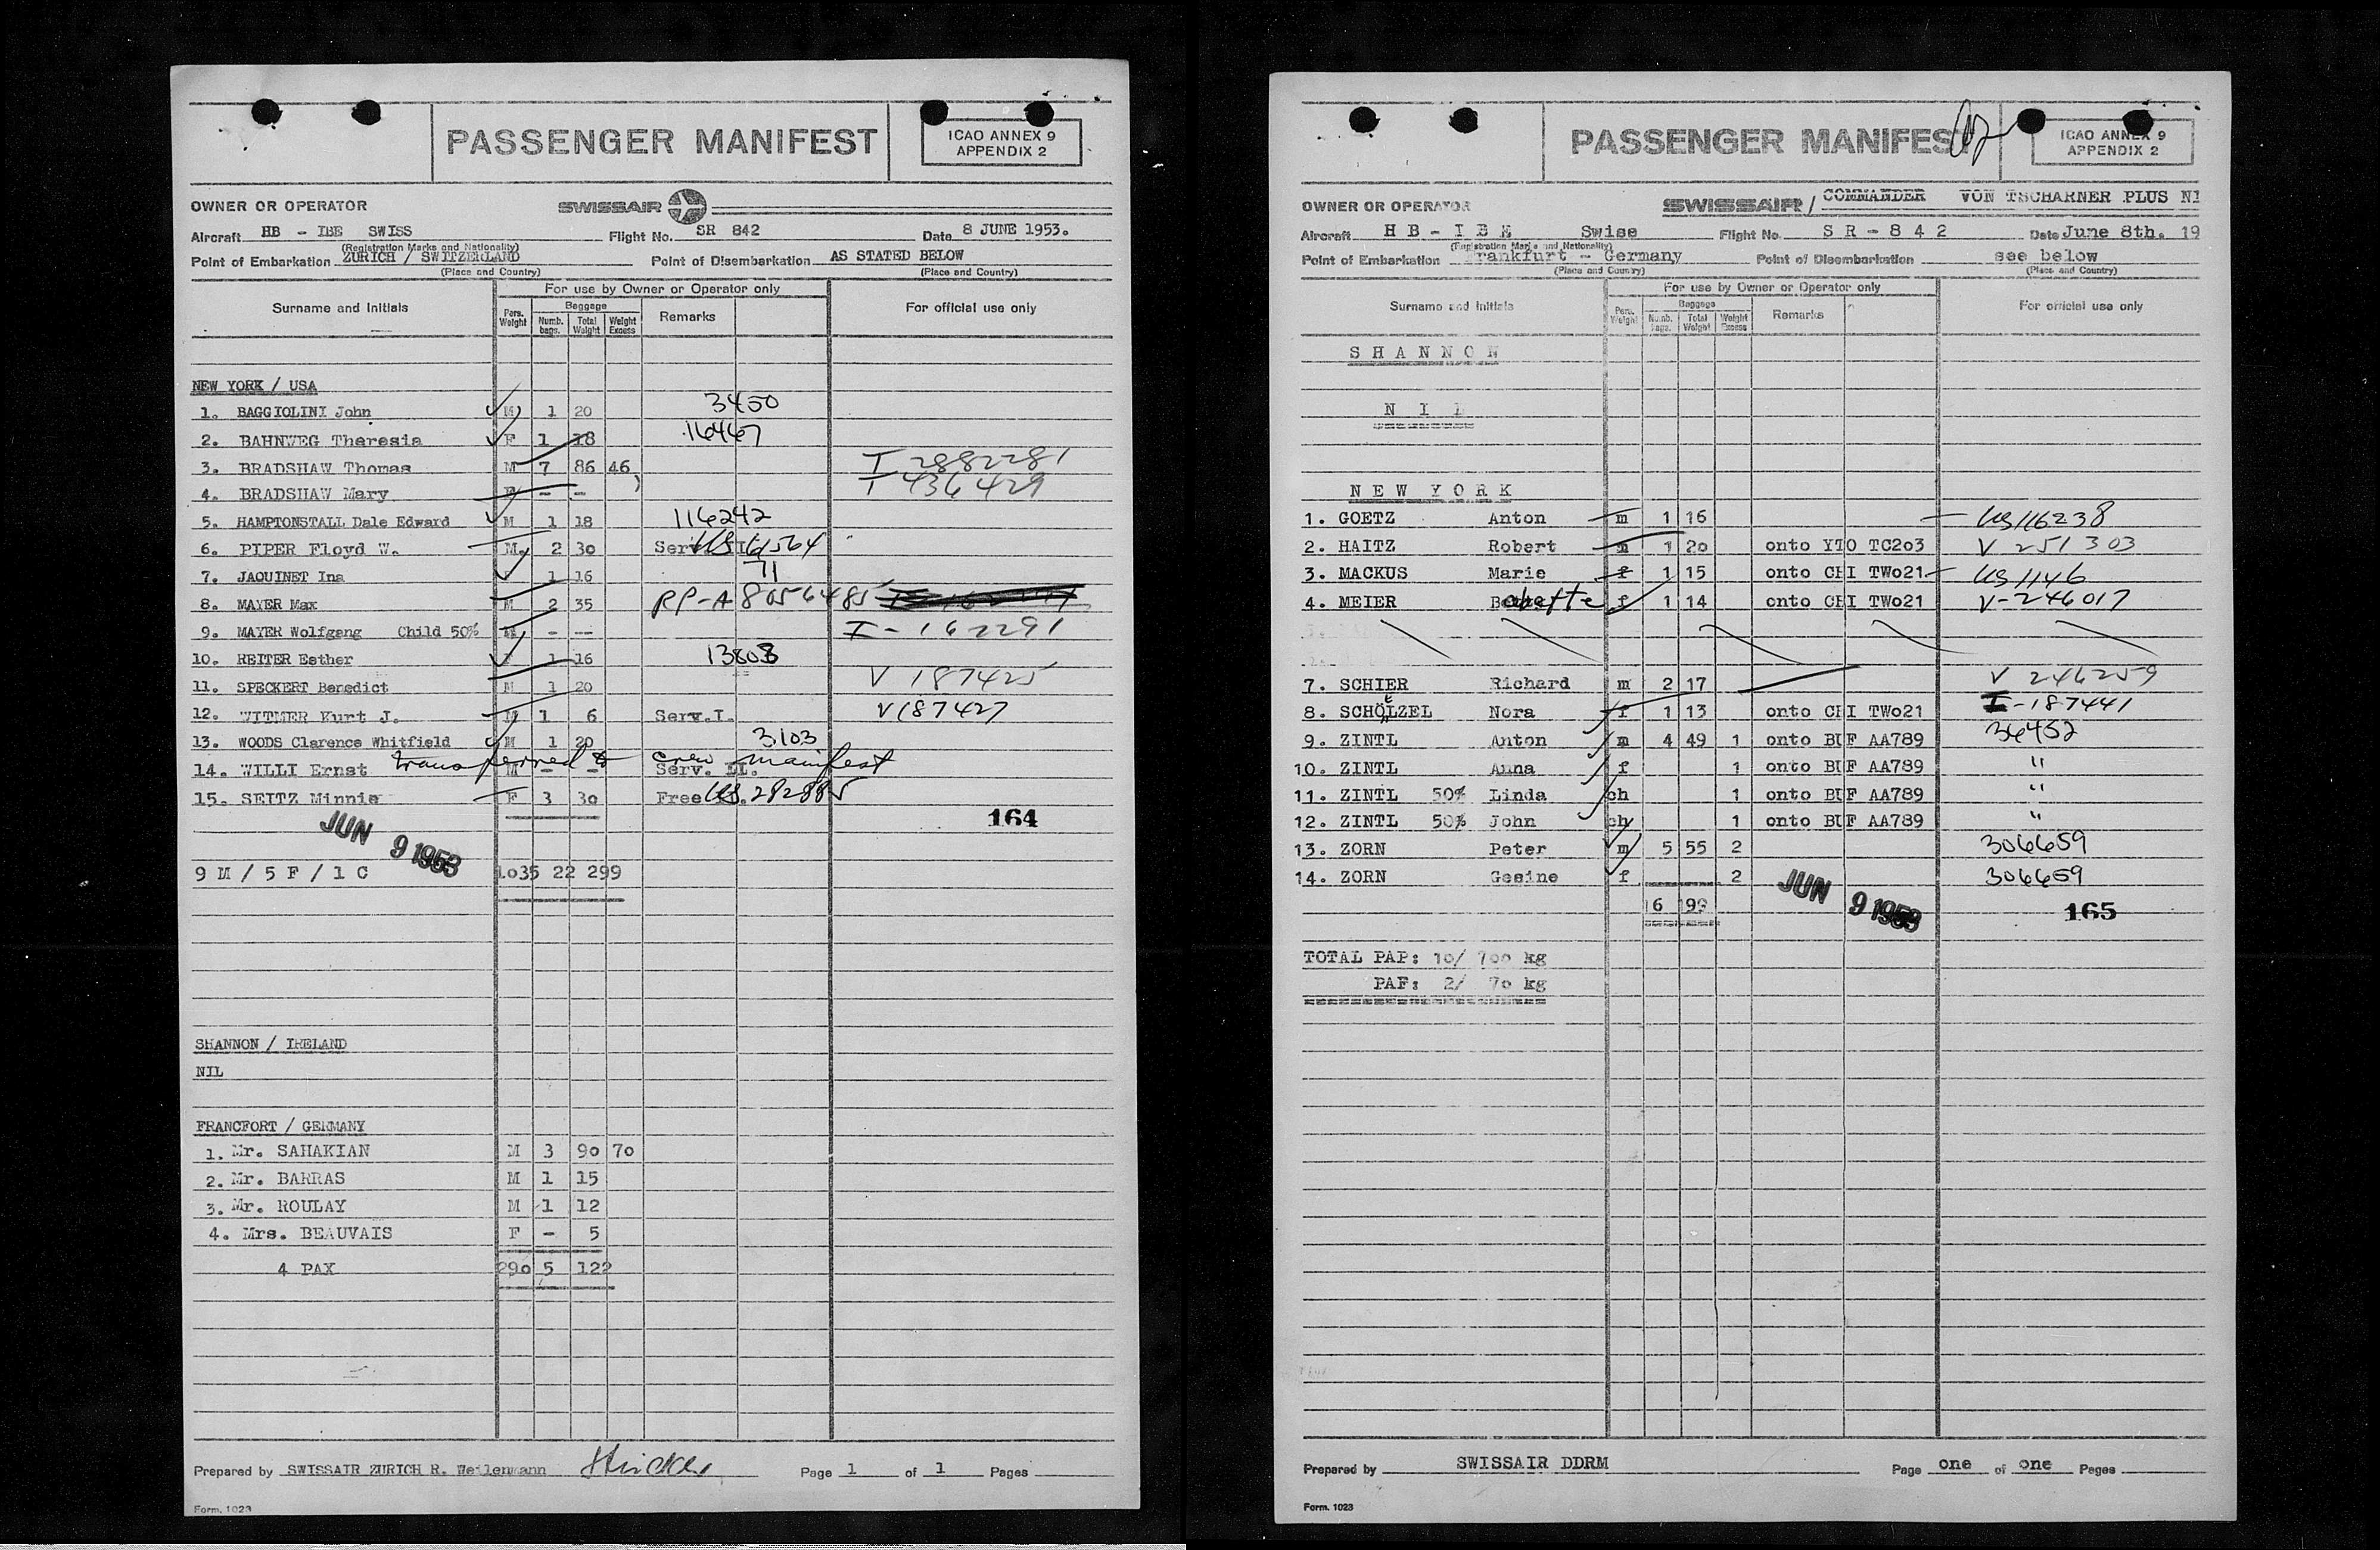 PASSENGER MANIFEST
ICAO ANNEX 9
APPENDIX 2
OWNER OR OPERATOR SWISSAIR
Aircraft HB - IBE SWISS Flight No. SR 842 Date 8 JUNE 1953.
(Registration Marks and Nationality)
Point of Embarkation ZURICH / SWITZERLAND Point of Disembarkation AS STATED BELOW
(Place and Country) (Place and Country)
For use by Owner or Operator only
Surname and Initials Pers. Weight Baggage Numb. bags. Total Weight Weight Excess Remarks For official use only
NEW YORK / USA
1. BAGGIOLINI John M 1 20 3450
2. BAHNWEG Theresia F 1 18 16467
3. BRADSHAW Thomas M 7 86 46 I 2882281
4. BRADSHAW Mary F - - I 436429
5. HAMPTONSTALL Dale Edward M 1 18 116242
6. PIPER Floyd W. M. 2 30 Serv. US 61564
7. JAQUINET Ina 1 16 71
8. MAYER Max M 2 35 RP-A8056485
9. MAYER Wolfgang Child 50% M - -- I-162291
10. REITER Esther F 1 16 13803
11. SPECKERT Benedict M 1 20 V 187425
12. WITMER Kurt J. M 1 6 Serv.I. V187427
13. WOODS Clarence Whitfield M 1 20 3103
14. WILLI Ernst transferred to M - - Serv. II. crew manifest
15. SEITZ Minnie F 3 30 Free US.282885
164
JUN 9 1953
9 M / 5 F / 1 C 1035 22 299
SHANNON / IRELAND
NIL
FRANCFORT / GERMANY
1. Mr. SAHAKIAN M 3 90 70
2. Mr. BARRAS M 1 15
3. Mr. ROULAY M 1 12
4. Mrs. BEAUVAIS F - 5
4 PAX 290 5 122
Prepared by SWISSAIR ZURICH R. Weilenmann Page 1 of 1 Pages
Form. 1023
PASSENGER MANIFEST
ICAO ANNEX 9
APPENDIX 2
OWNER OR OPERATOR SWISSAIR / COMMANDER VON TSCHARNER PLUS N1
Aircraft HB-IBE Swiss Flight No. SR-842 Date June 8th. 19
(Registration Marks and Nationality)
Point of Embarkation Frankfurt - Germany Point of Disembarkation see below
(Place and Country) (Place and Country)
For use by Owner or Operator only
Surname and Initials Pers. Weight Baggage Numb. bags. Total Weight Weight Excess Remarks For official use only
SHANNON
NIL
NEW YORK
1. GOETZ Anton m 1 16 US116238
2. HAITZ Robert m 1 20 onto YTO TC203 V 251303
3. MACKUS Marie f 1 15 onto CHI TW021 US1146
4. MEIER f 1 14 onto CHI TW021 V-246017
7. SCHIER Richard m 2 17 V 246259
8. SCHÖLZEL Nora f 1 13 onto CHI TW021 I-187441
9. ZINTL Anton m 4 49 1 onto BUF AA789 36452
10. ZINTL Anna f 1 onto BUF AA789 "
11. ZINTL 50% Linda ch 1 onto BUF AA789 "
12. ZINTL 50% John ch 1 onto BUF AA789 "
13. ZORN Peter m 5 55 2 306659
14. ZORN Gesine f 2 306659
16 199
JUN 9 1953
165
TOTAL PAP: 10/ 700 kg
PAF: 2/ 70 kg
Prepared by SWISSAIR DDRM Page one of one Pages
Form. 1023